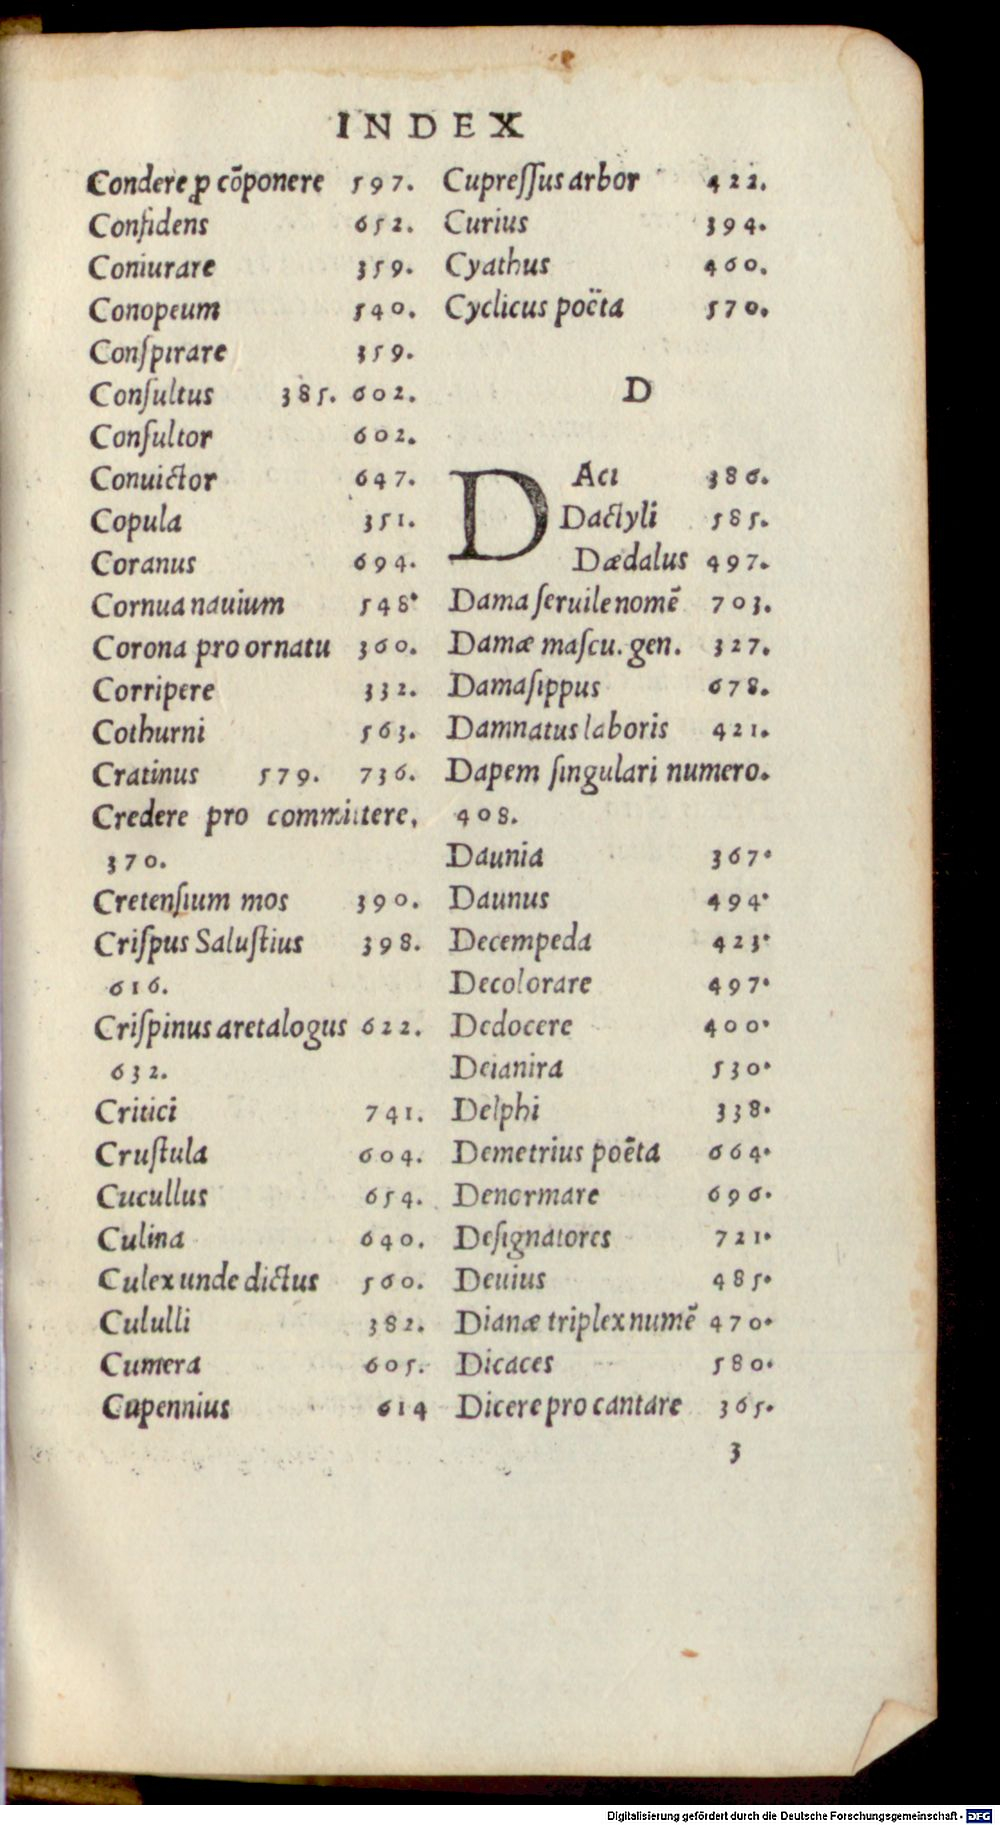 INDEX
Condere ꝓ cõponere 597.
Confidens 652.
Coniurare 359.
Conopeum 540.
Conſpirare 359.
Conſultus 385. 602.
Conſultor 602.
Conuictor 647.
Copula 351.
Coranus 694.
Cornua nauium 548.
Corona pro ornatu 360.
Corripere 332.
Cothurni 563.
Cratinus 579. 736.
Credere pro committere,
370.
Cretenſium mos 390.
Criſpus Saluſtius 398.
616.
Criſpinus aretalogus 622.
632.
Critici 741.
Cruſtula 604.
Cucullus 654.
Culina 640.
Culex unde dictus 560.
Cululli 382.
Cumera 605.
Cupennius 614
Cupreſſus arbor 422.
Curius 394.
Cyathus 460.
Cyclicus poëta 570.
D
DAci 386.
Dactyli 585.
Dædalus 497.
Dama ſeruile nomẽ 703.
Damæ maſcu. gen. 327.
Damaſippus 678.
Damnatus laboris 421.
Dapem ſingulari numero.
408.
Daunia 367.
Daunus 494.
Decempeda 423.
Decolorare 497.
Dedocere 400.
Deianira 530.
Delphi 338.
Demetrius poëta 664.
Denormare 696.
Deſignatores 721.
Deuius 485.
Dianæ triplex numẽ 470.
Dicaces 580.
Dicere pro cantare 365.
3
Digitalisierung gefördert durch die Deutsche Forschungsgemeinschaft - DFG